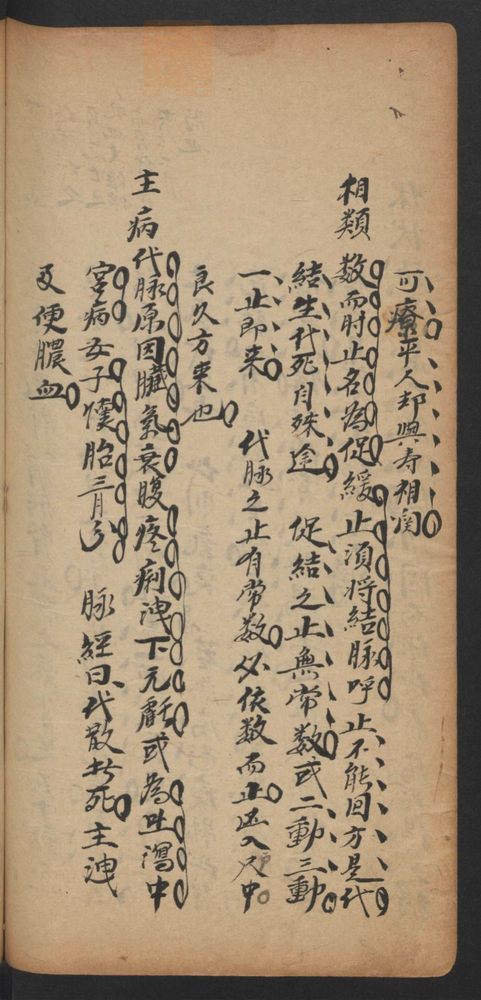 可療平人却與寿相関
相類 数而时止名為促緩止須将結脉呼止不能囬方是代
結生代死自殊途 促結之止無常数或二動三動
一止即来 代脉之止有常数必依数而止還入尺中
良久方来也
主病 代脉原因臓氣衰腹疼痢洩下元虧或為吐瀉中
宫病女子懐胎三月兮 脉經曰代散者死主洩
及便膿血